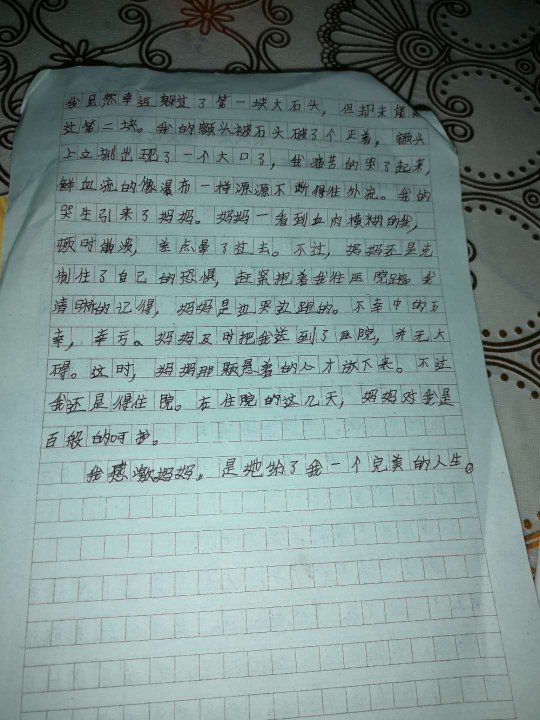 我虽然幸运躲过了第一块大石头，但却未能躲
过第二块。我的额头被石头砸了个正着，额头
上立刻出现了一个大口子，我痛苦的哭了起来，
鲜血流的像瀑布一样源源不断得往外流。我的
哭生引来了妈妈。妈妈一看到血肉模糊的我，
顿时崩溃，差点晕了过去。不过，妈妈还是克
制住了自己的恐惧，赶紧抱着我往医院跑。我
清晰的记得，妈妈是边哭边跑的。不幸中的万
幸，幸亏。妈妈及时把我送到了医院，并无大
碍。这时，妈妈那颗悬着的心才放下来。不过
我还是得住院。在住院的这几天，妈妈对我是
百般的呵护。
我感激妈妈，是她给了我一个完美的人生。